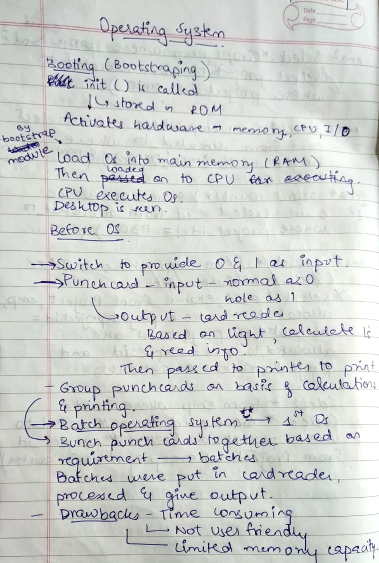 Date
Page
Operating System
Booting (Bootstraping)
init () is called
↳ stored in ROM
Activates hardware - memory, CPU, I/O
by bootstrap module
Load Os into main memory (RAM)
Then loaded on to CPU for executing.
CPU executes Os.
Desktop is seen.
Before OS
→ Switch to provide 0 & 1 as input.
→ Punchcard - input - normal as 0
hole as 1
↳ Output - card reader
Based on light, calculate is
& read info.
Then passed to printer to print
- Group punchcards on basis of calculations
& printing.
→ Batch operating system → 1st Os
→ Bunch punch cards together based on
requirement → batches
Batches were put in cardreader,
processed & give output.
- Drawbacks - Time consuming
Not user friendly
Limited memory capacity.